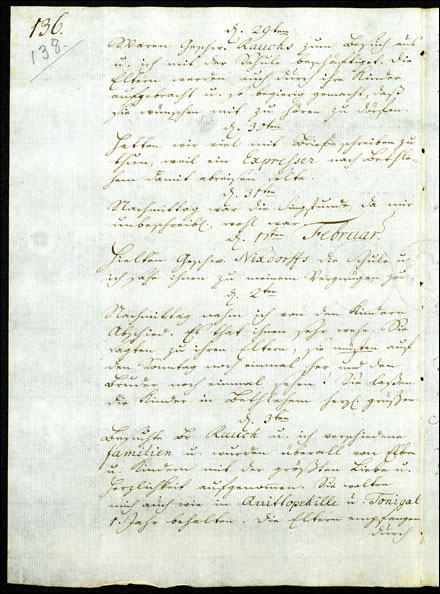 136.
138.
d. 29ten
Waren Geschw. Rauchs zum Besuch aus
u. ich mit der Schule beschäftiget. Die
Eltern werden auch durch ihre Kinder
aufgebracht u. so begierig gemacht, daß
sie wünschen mit zu hören zu dörfen.
d. 30ten
Hatten wir viel mit Briefe schreiben zu
thun, weil ein Expresser nach Bethle-
hem damit abreisen solte.
d. 31ten
Nachmittag war die Singstunde, da mir
unbeschreibl. wohl war.
d. 1ten Februar.
Hielten Geschw. Nixdorffs die Schule u.
ich sahe ihnen zu meinem Vergnügen zu.
d. 2ten
Nachmittag nahm ich von den Kindern
Abschied. Es that ihnen sehr wehe. Sie
sagten zu ihren Eltern, sie müsten auf
den Sonntag noch einmal her und den
Bruder noch einmal sehen. Sie laßen
die Kinder in Bethlehem herzl. grüßen
d. 3ten
Besuchte Br. Rauch u. ich verschiedene
familien u. wurden überall von Eltern
u. Kindern mit der größten Liebe u.
Herzlichkeit aufgenomen. Sie wolten
mich auch wie in Quittopehille u. Tonigal
1. Jahr behalten. Die Eltern empfangen
durch